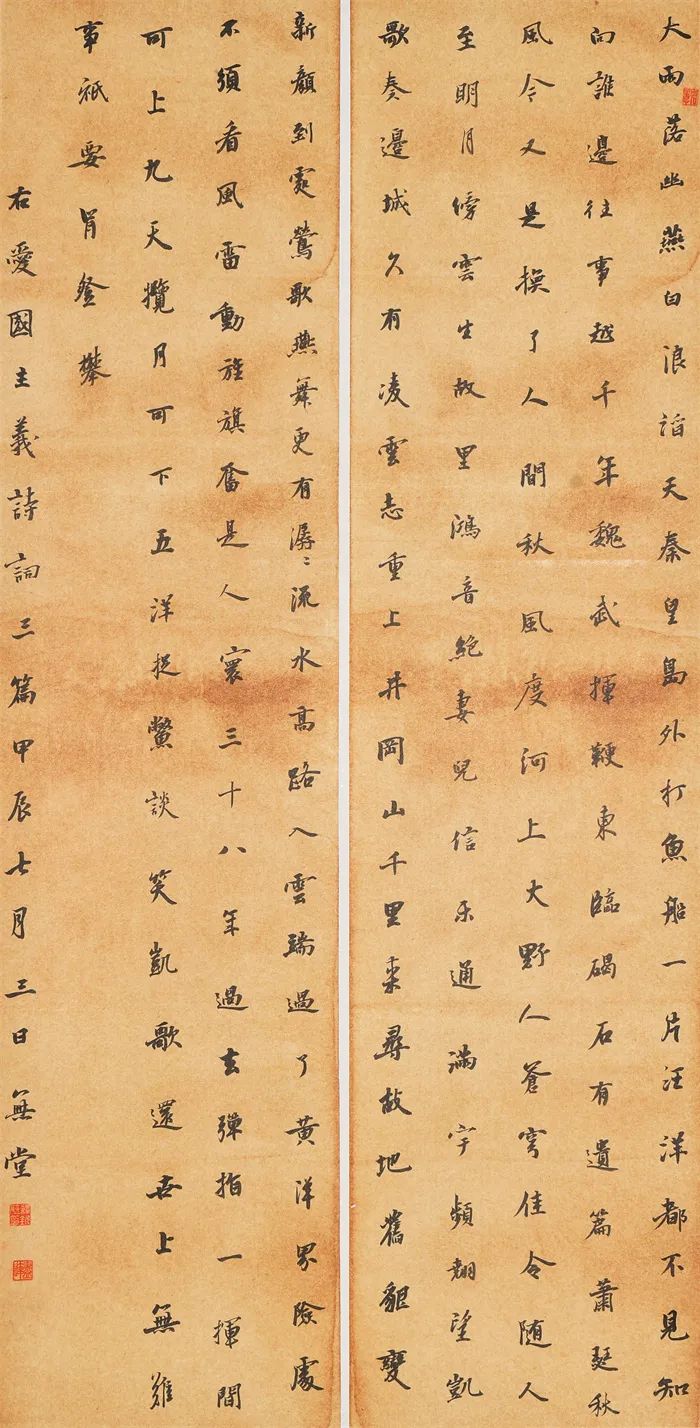 大雨落幽燕白浪滔天秦皇島外打魚船一片汪洋都不見知
向誰邊往事越千年魏武揮鞭東臨碣石有遺篇蕭瑟秋
風今又是換了人間秋風度河上大野入蒼穹佳令随人
至明月傍雲生故里鴻音絶妻兒信未通滿宇頻翹望凱
歌奏邊城久有凌雲志重上井岡山千里来尋故地舊貌變
新顏到處鶯歌燕舞更有潺〻流水高路入雲端過了黄洋界險處
不須看風雷動旌旗奮是人寰三十八年過去彈指一揮間
可上九天攬月可下五洋捉鱉談笑凱歌還世上無難
事祇要肯登攀
右愛國主義詩詞三篇甲辰七月三日無堂